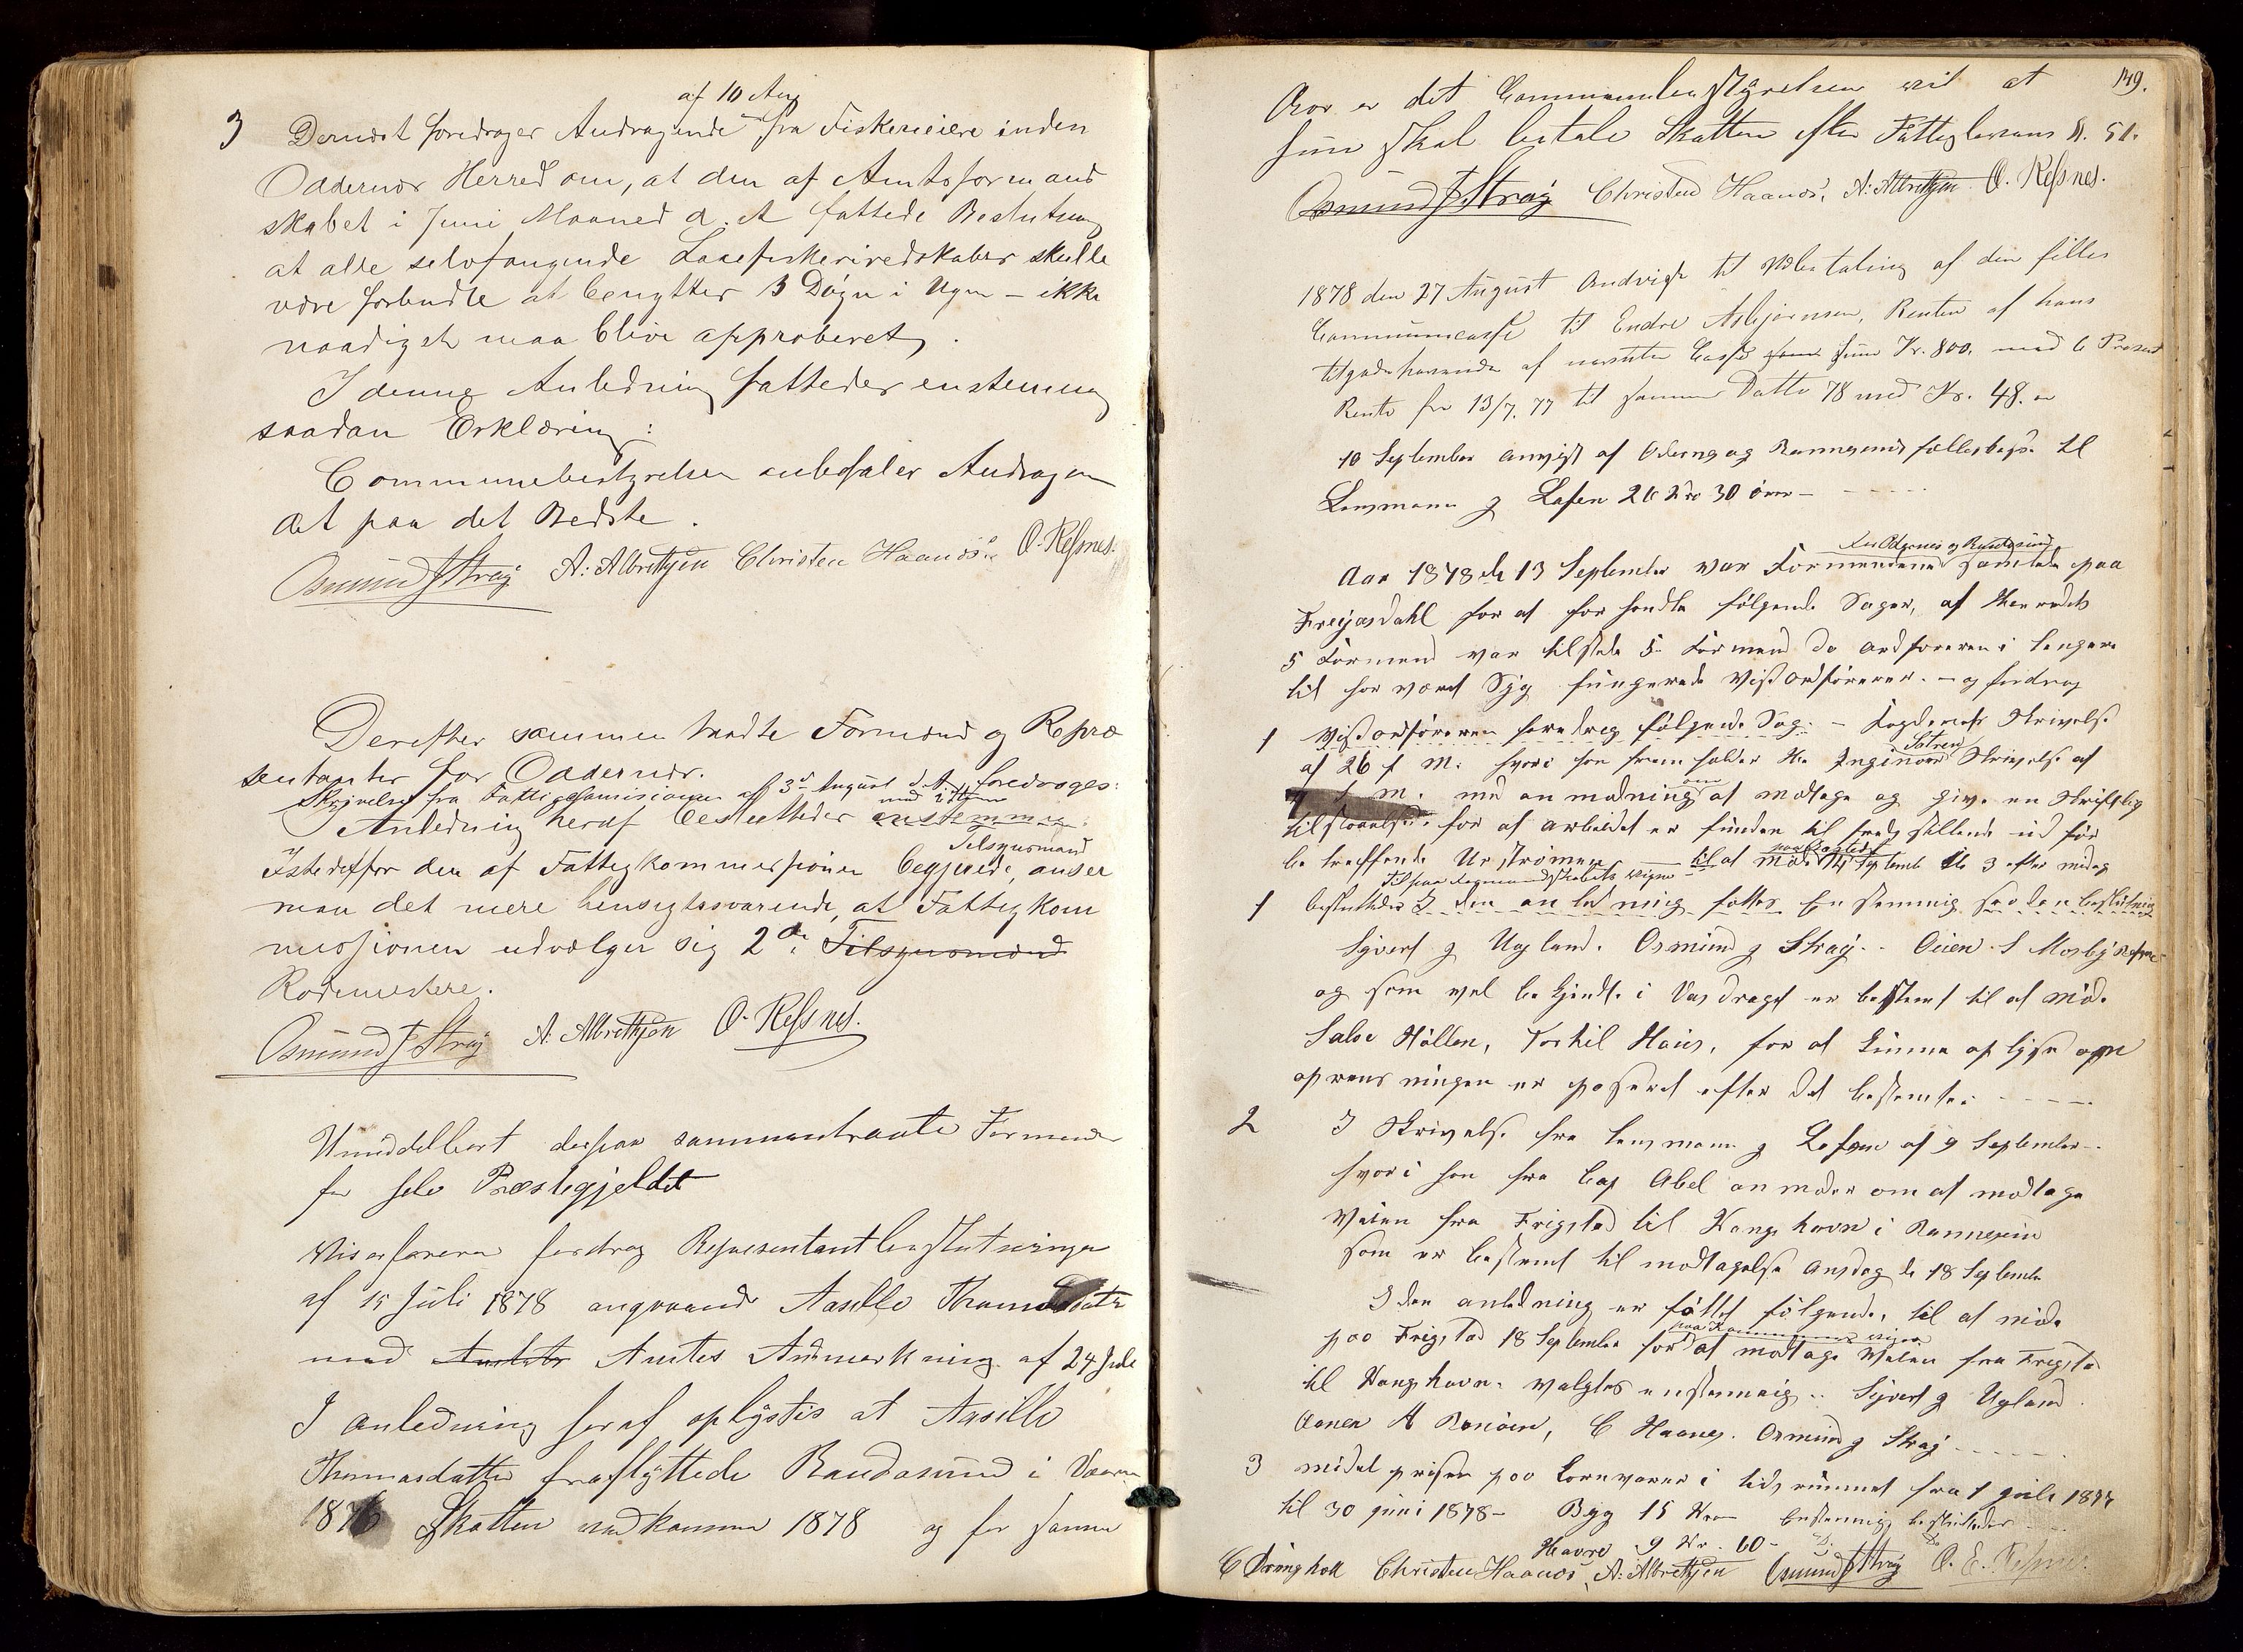 af 10 Aug
3 Dernæst foredrages Andragende fra Fiskerieiere inden
Oddernæs Herred om, at den af Amtsformand
skabet i Juni Maaned d. A fattede Beslutning
at alle selvfangende Laxefiskeriredskaber skulle
være forbudte at benyttes 3 Døgn i Ugen – ikke
naadigst maa blive approberet.
I denne Anledning fattedes enstemmig
saadan Erklæring:
Communebestyrelsen anbefaler Andragen
det paa det Bedste.
Osmund J Straÿ A: Albrethsen Christen Haanæs. O. Resnes.
Derefter sammentraadte Formænd og Repræ
sentanter for Oddernæs.
Skrivelse fra Fattigcomisionen af 3d August d. A. foredroges:
I Anledning heraf besluttedes enstemmig:
Tilsynsmand
Istedetfor den af Fattigkommissionen begjærede, anser
man det mere hensigtssvarende, at Fattigkom
missionen udvælger sig 2de Tilsynsmænd
Rodemestere.
Osmund J Straÿ A: Albrethsen O. Resnes.
Umiddelbart derpaa sammentraadte Formænder
for hele Præstegjeldet
Visorføreren fordrog Representantbeslutningen
af 15 Juli 1878 angaaende Aasille Thomasdatr
med Amtets Amtes Anmerkning af 24 Juli
I anledning heraf oplystes at Aasille
Thomasdatter fraflyttede Randøsund i Vaaren
1876 Skatten vedkommer 1878 og for samme
149.
Aar er det Communebestyrelsen vil at
hun skal betale Skatten efter Fattiglovens §. 51.
Osmund J Straÿ Christen Haanæs, A: Albrethsen O. Resnes.
1878 den 27 August Andvist til Udbetaling af den felles
Communecasse til Endre Asbjørnsen, Renten af hans
tilgodehavende af nævnte Casse som Kr. 800, med 6 Prosent
Rente fra 13/7, 77 til samme Datto 78 med Kr. 48. er
10 September anvist af Odernæs og Rannesunds fellesk. til
Lensmann J Lassen 26 Kr 30 øre –
for Odernes og Randøsund
Aar 1878 de 13 September var Formendene samlede paa
Freijasdahl for at forhandle følgende Sager, af Herredets
5 Formend var tilstede 5. Formend da ordføreren i lengere
tid har vært Syg fungerede Visordføreren. –
1 Visordføreren foredrog følgende Sag: – Fogdenes Skrivelse
af 26 f M: hvori han fremholder Hr Inginør Skrivelse af
f M. med anmodning om at modtage og give en Skriftlig
tilstaaelse for at arbeidet er funden tilfredsstillende udført
betreffende – til at møde September Kl 3 eftermidag
1 besluttedes I den anledning fattes Enstemmig saaden beslutning
Syvert J Ugland. Osmund J Straÿ. Ouen S Mosby
og som vel bekjendte i Vasdraget er bestemt til at møde
Salve Høllen, Torkil Haus, for at kunne oplyse om
oprensningen er paseret efter det bestemte.
2 I Skrivelse fra Lensmann J Lassen af 9 September
hvori han fra Cap Abel anmoder om at modtage
Veien fra Frigstad til Kongshavn i Rannesun
som er bestemt til modtagelse Onsdag de 18 September
I den anledning er fattet følgende, til at møde
paa Frigstad 18 September for at modtage Veien fra Frigstad
til Kongshavn. valgtes enstemmig. Syvert J Ugland
Aanen A Rønaaen, C Haanes. Osmund J Straÿ
3 Midelprisen paa Kornvarer i tidsrummet fra 1 juli 1877
til 30 juni 1878 – Byg 15 Kro enstemmig besluttedes
Havre 9 Kr. 60 – Do Do
C Drangholt Christen Haanæs, A: Albrethsen Osmund J Straÿ O. E. Resnes.